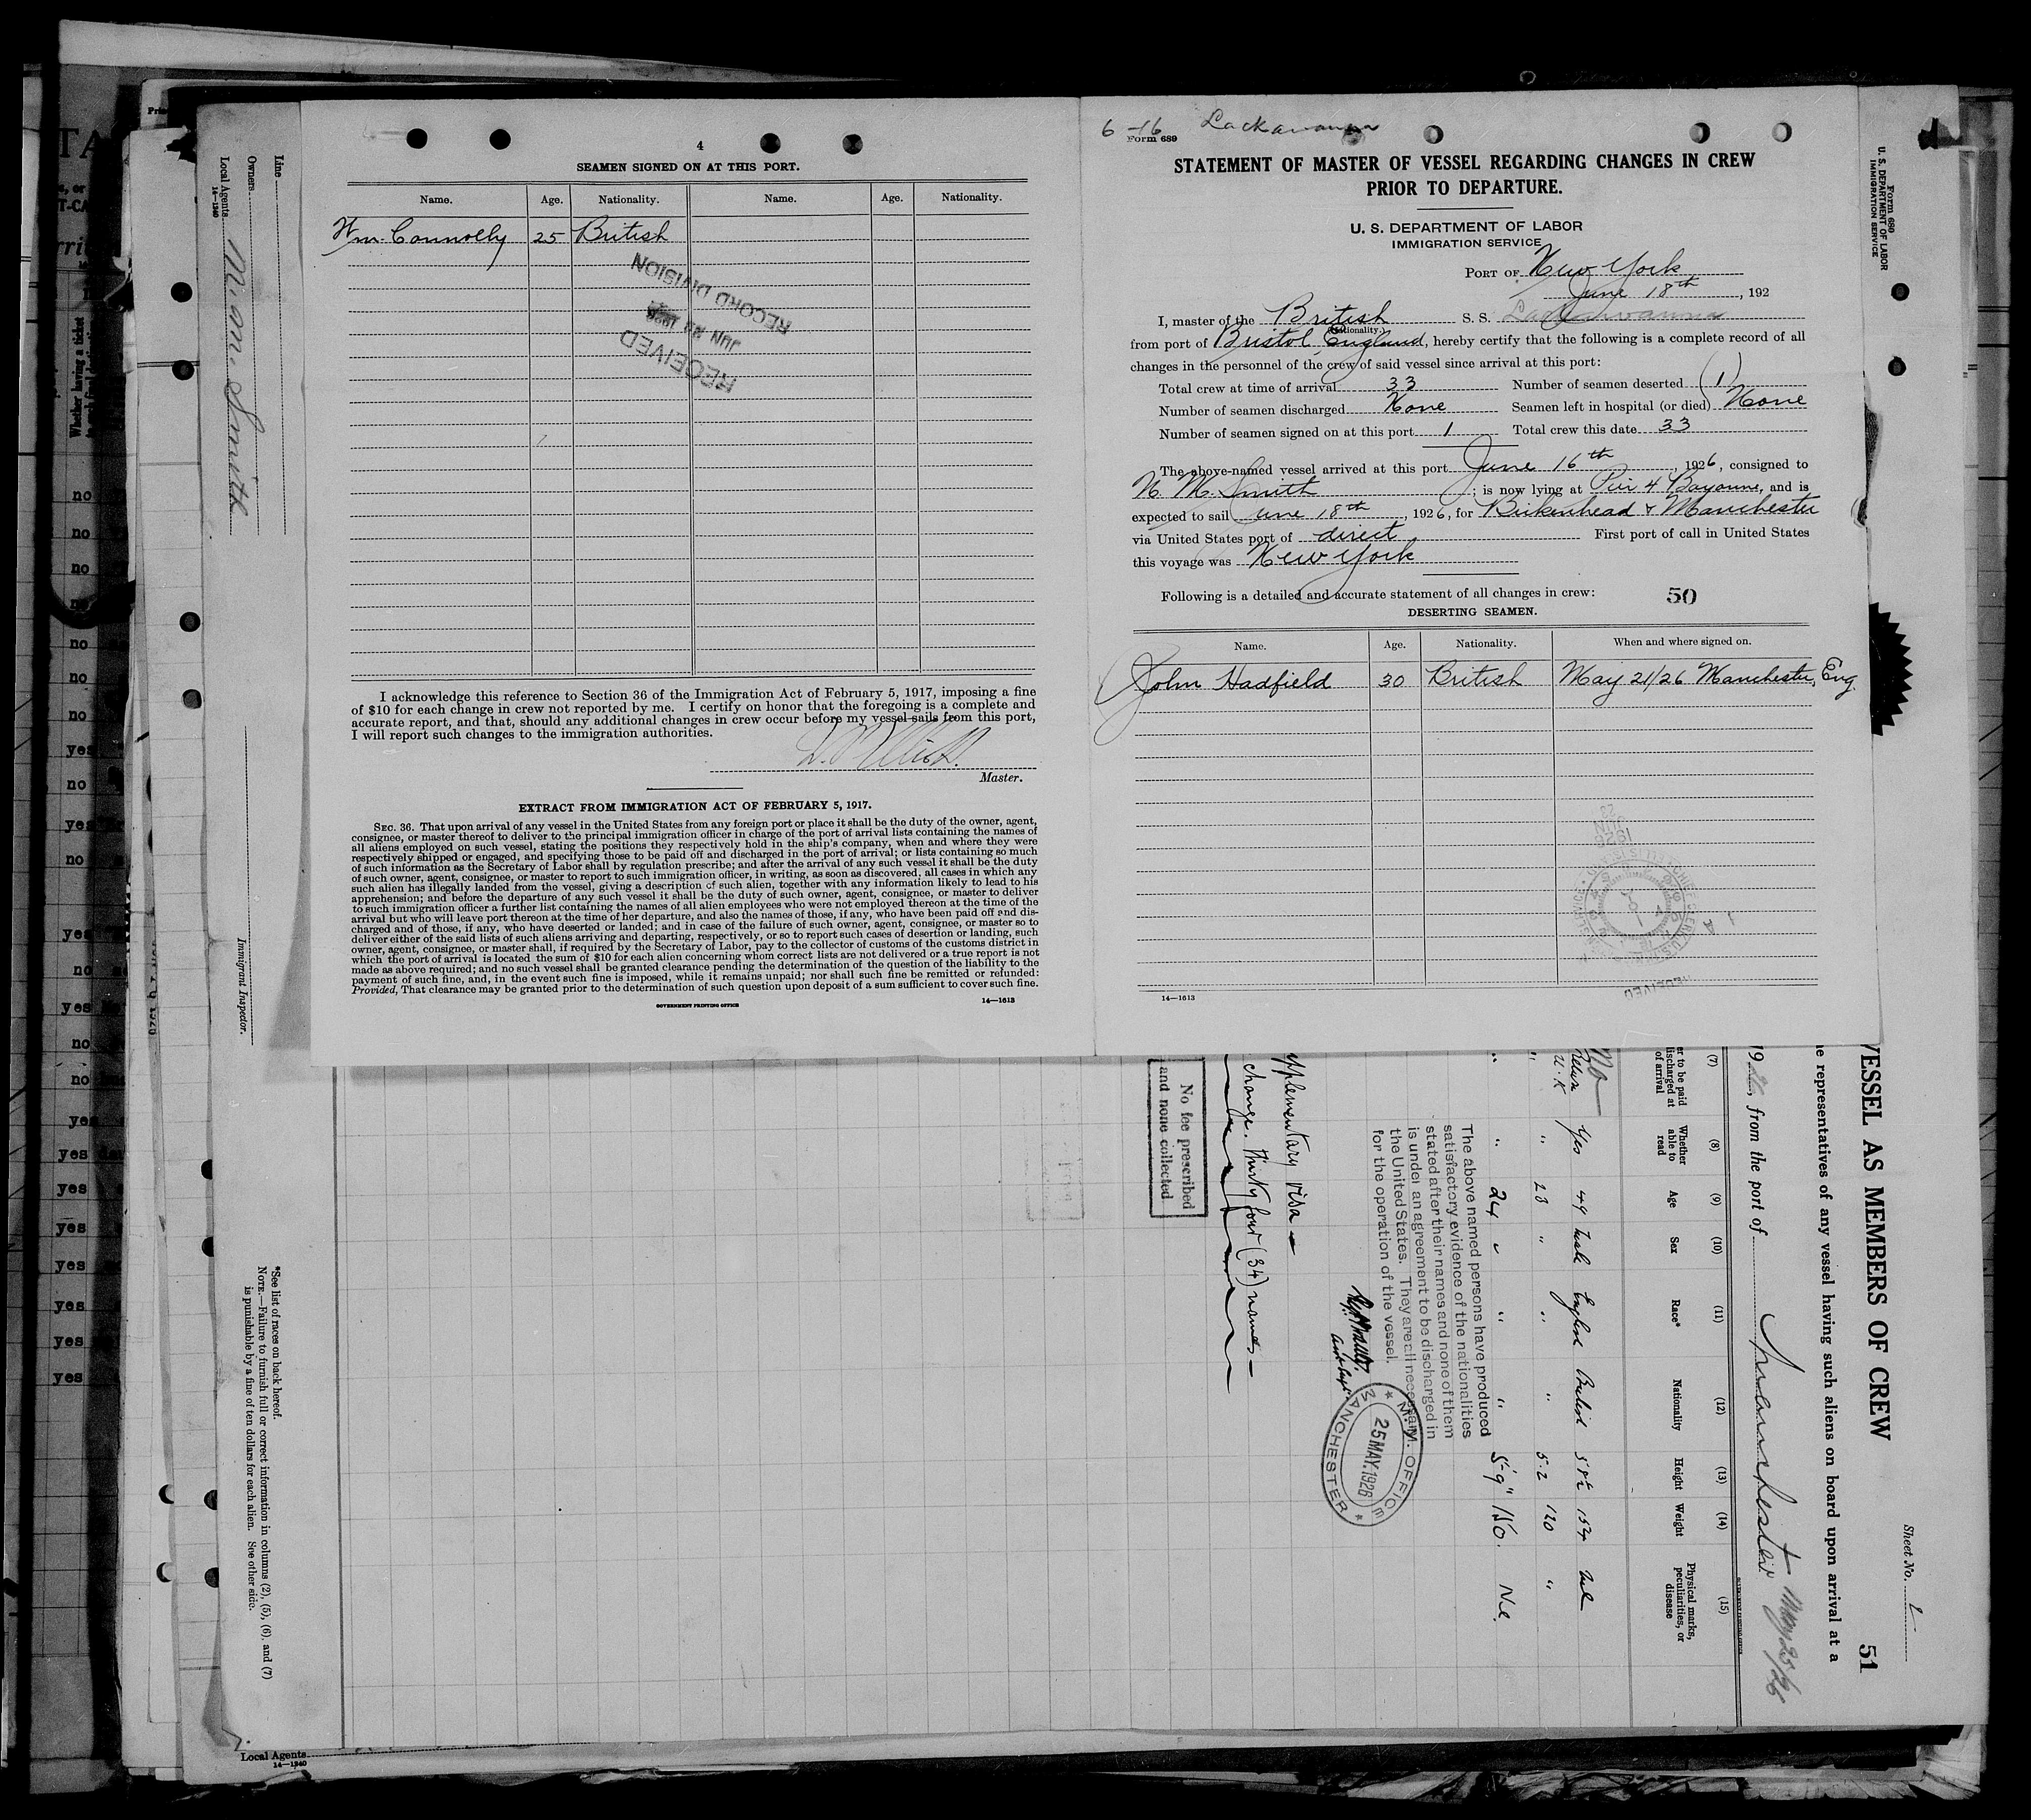 4
SEAMEN SIGNED ON AT THIS PORT.
Name. Age. Nationality. Name. Age. Nationality.
Wm. Connolly 25 British
RECORD DIVISION
JUN 1926
RECEIVED
I acknowledge this reference to Section 36 of the Immigration Act of February 5, 1917, imposing a fine
of $10 for each change in crew not reported by me. I certify on honor that the foregoing is a complete and
accurate report, and that, should any additional changes in crew occur before my vessel sails from this port,
I will report such changes to the immigration authorities.
Master.
EXTRACT FROM IMMIGRATION ACT OF FEBRUARY 5, 1917.
SEC. 36. That upon arrival of any vessel in the United States from any foreign port or place it shall be the duty of the owner, agent,
consignee, or master thereof to deliver to the principal immigration officer in charge of the port of arrival lists containing the names of
all aliens employed on such vessel, stating the positions they respectively hold in the ship's company, when and where they were
respectively shipped or engaged, and specifying those to be paid off and discharged in the port of arrival; or lists containing so much
of such information as the Secretary of Labor shall by regulation prescribe; and after the arrival of any such vessel it shall be the duty
of such owner, agent, consignee, or master to report to such immigration officer, in writing, as soon as discovered, all cases in which any
such alien has illegally landed from the vessel, giving a description of such alien, together with any information likely to lead to his
apprehension; and before the departure of any such vessel it shall be the duty of such owner, agent, consignee, or master to deliver
to such immigration officer a further list containing the names of all alien employees who were not employed thereon at the time of the
arrival but who will leave port thereon at the time of her departure, and also the names of those, if any, who have been paid off and dis-
charged and of those, if any, who have deserted or landed; and in case of the failure of such owner, agent, consignee, or master so to
deliver either of the said lists of such aliens arriving and departing, respectively, or so to report such cases of desertion or landing, such
owner, agent, consignee, or master shall, if required by the Secretary of Labor, pay to the collector of customs of the customs district in
which the port of arrival is located the sum of $10 for each alien concerning whom correct lists are not delivered or a true report is not
made as above required; and no such vessel shall be granted clearance pending the determination of the question of the liability to the
payment of such fine, and, in the event such fine is imposed, while it remains unpaid; nor shall such fine be remitted or refunded:
Provided, That clearance may be granted prior to the determination of such question upon deposit of a sum sufficient to cover such fine.
GOVERNMENT PRINTING OFFICE 14—1613
6-16 Lackawanna
Form 689
STATEMENT OF MASTER OF VESSEL REGARDING CHANGES IN CREW
PRIOR TO DEPARTURE.
U. S. DEPARTMENT OF LABOR
IMMIGRATION SERVICE
PORT OF New York
June 18th, 192
I, master of the British S. S. Lackawanna
(Nationality.)
from port of Bristol, England, hereby certify that the following is a complete record of all
changes in the personnel of the crew of said vessel since arrival at this port:
Total crew at time of arrival 33 Number of seamen deserted (1)
Number of seamen discharged None Seamen left in hospital (or died) None
Number of seamen signed on at this port 1 Total crew this date 33
The above-named vessel arrived at this port June 16th, 1926, consigned to
N. M. Smith; is now lying at Pier 4 Bayonne, and is
expected to sail June 18th, 1926, for Birkenhead & Manchester
via United States port of direct First port of call in United States
this voyage was New York
Following is a detailed and accurate statement of all changes in crew: 50
DESERTING SEAMEN.
Name. Age. Nationality. When and where signed on.
John Hadfield 30 British May 21/26 Manchester, Eng.
RECEIVED
14—1613
Form 689
U. S. DEPARTMENT OF LABOR
IMMIGRATION SERVICE
Line
Owners
Local Agents
14—1340
Immigrant Inspector.
*See list of races on back hereof.
NOTE.—Failure to furnish full or correct information in columns (2), (5), (6), and (7)
is punishable by a fine of ten dollars for each alien. See other side.
Local Agents
14—1340
Sheet No. 51
VESSEL AS MEMBERS OF CREW
e representatives of any vessel having such aliens on board upon arrival at a
, from the port of Manchester May 25/26
(7) (8) (9) (10) (11) (12) (13) (14) (15)
er to be paid
discharged at
of arrival
Whether
able to
read
Age
Sex
Race*
Nationality
Height
Weight
Physical marks,
peculiarities, or
disease
No
Return U.K Yes 49 Male English British
" " 23 " " " 5.2 120 "
" " 24 " " " 5'9" 150.
The above named persons have produced
satisfactory evidence of the nationalities
stated after their names and none of them
is under an agreement to be discharged in
the United States. They are all necessary
for the operation of the vessel.
M. M. OFFICE
25 MAY. 1926
MANCHESTER
pplementary visa —
change. Thirty four (34) names —
No fee prescribed
and none collected